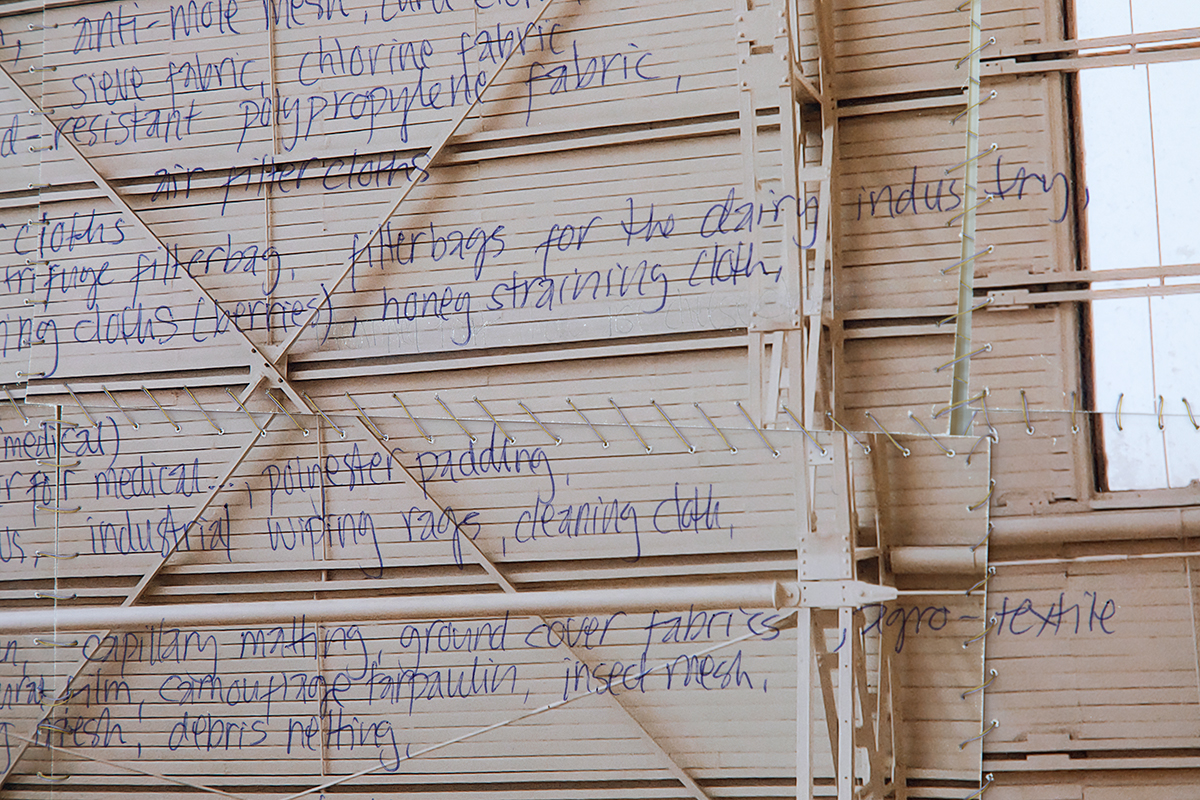 anti-mole mesh,
sieve fabric, chlorine fabric
resistant polypropylene fabric,
air filtercloths
cloths
filterbag, filterbags for the dairy industry,
cloths (berries), honey straining cloth,
medical)
for medical..., polyester padding,
industrial wiping rags, cleaning cloth,
capillary mathing, ground cover fabrics, agro-textile
film, camouflage tarpaulin, insect mesh,
mesh, debris netting,